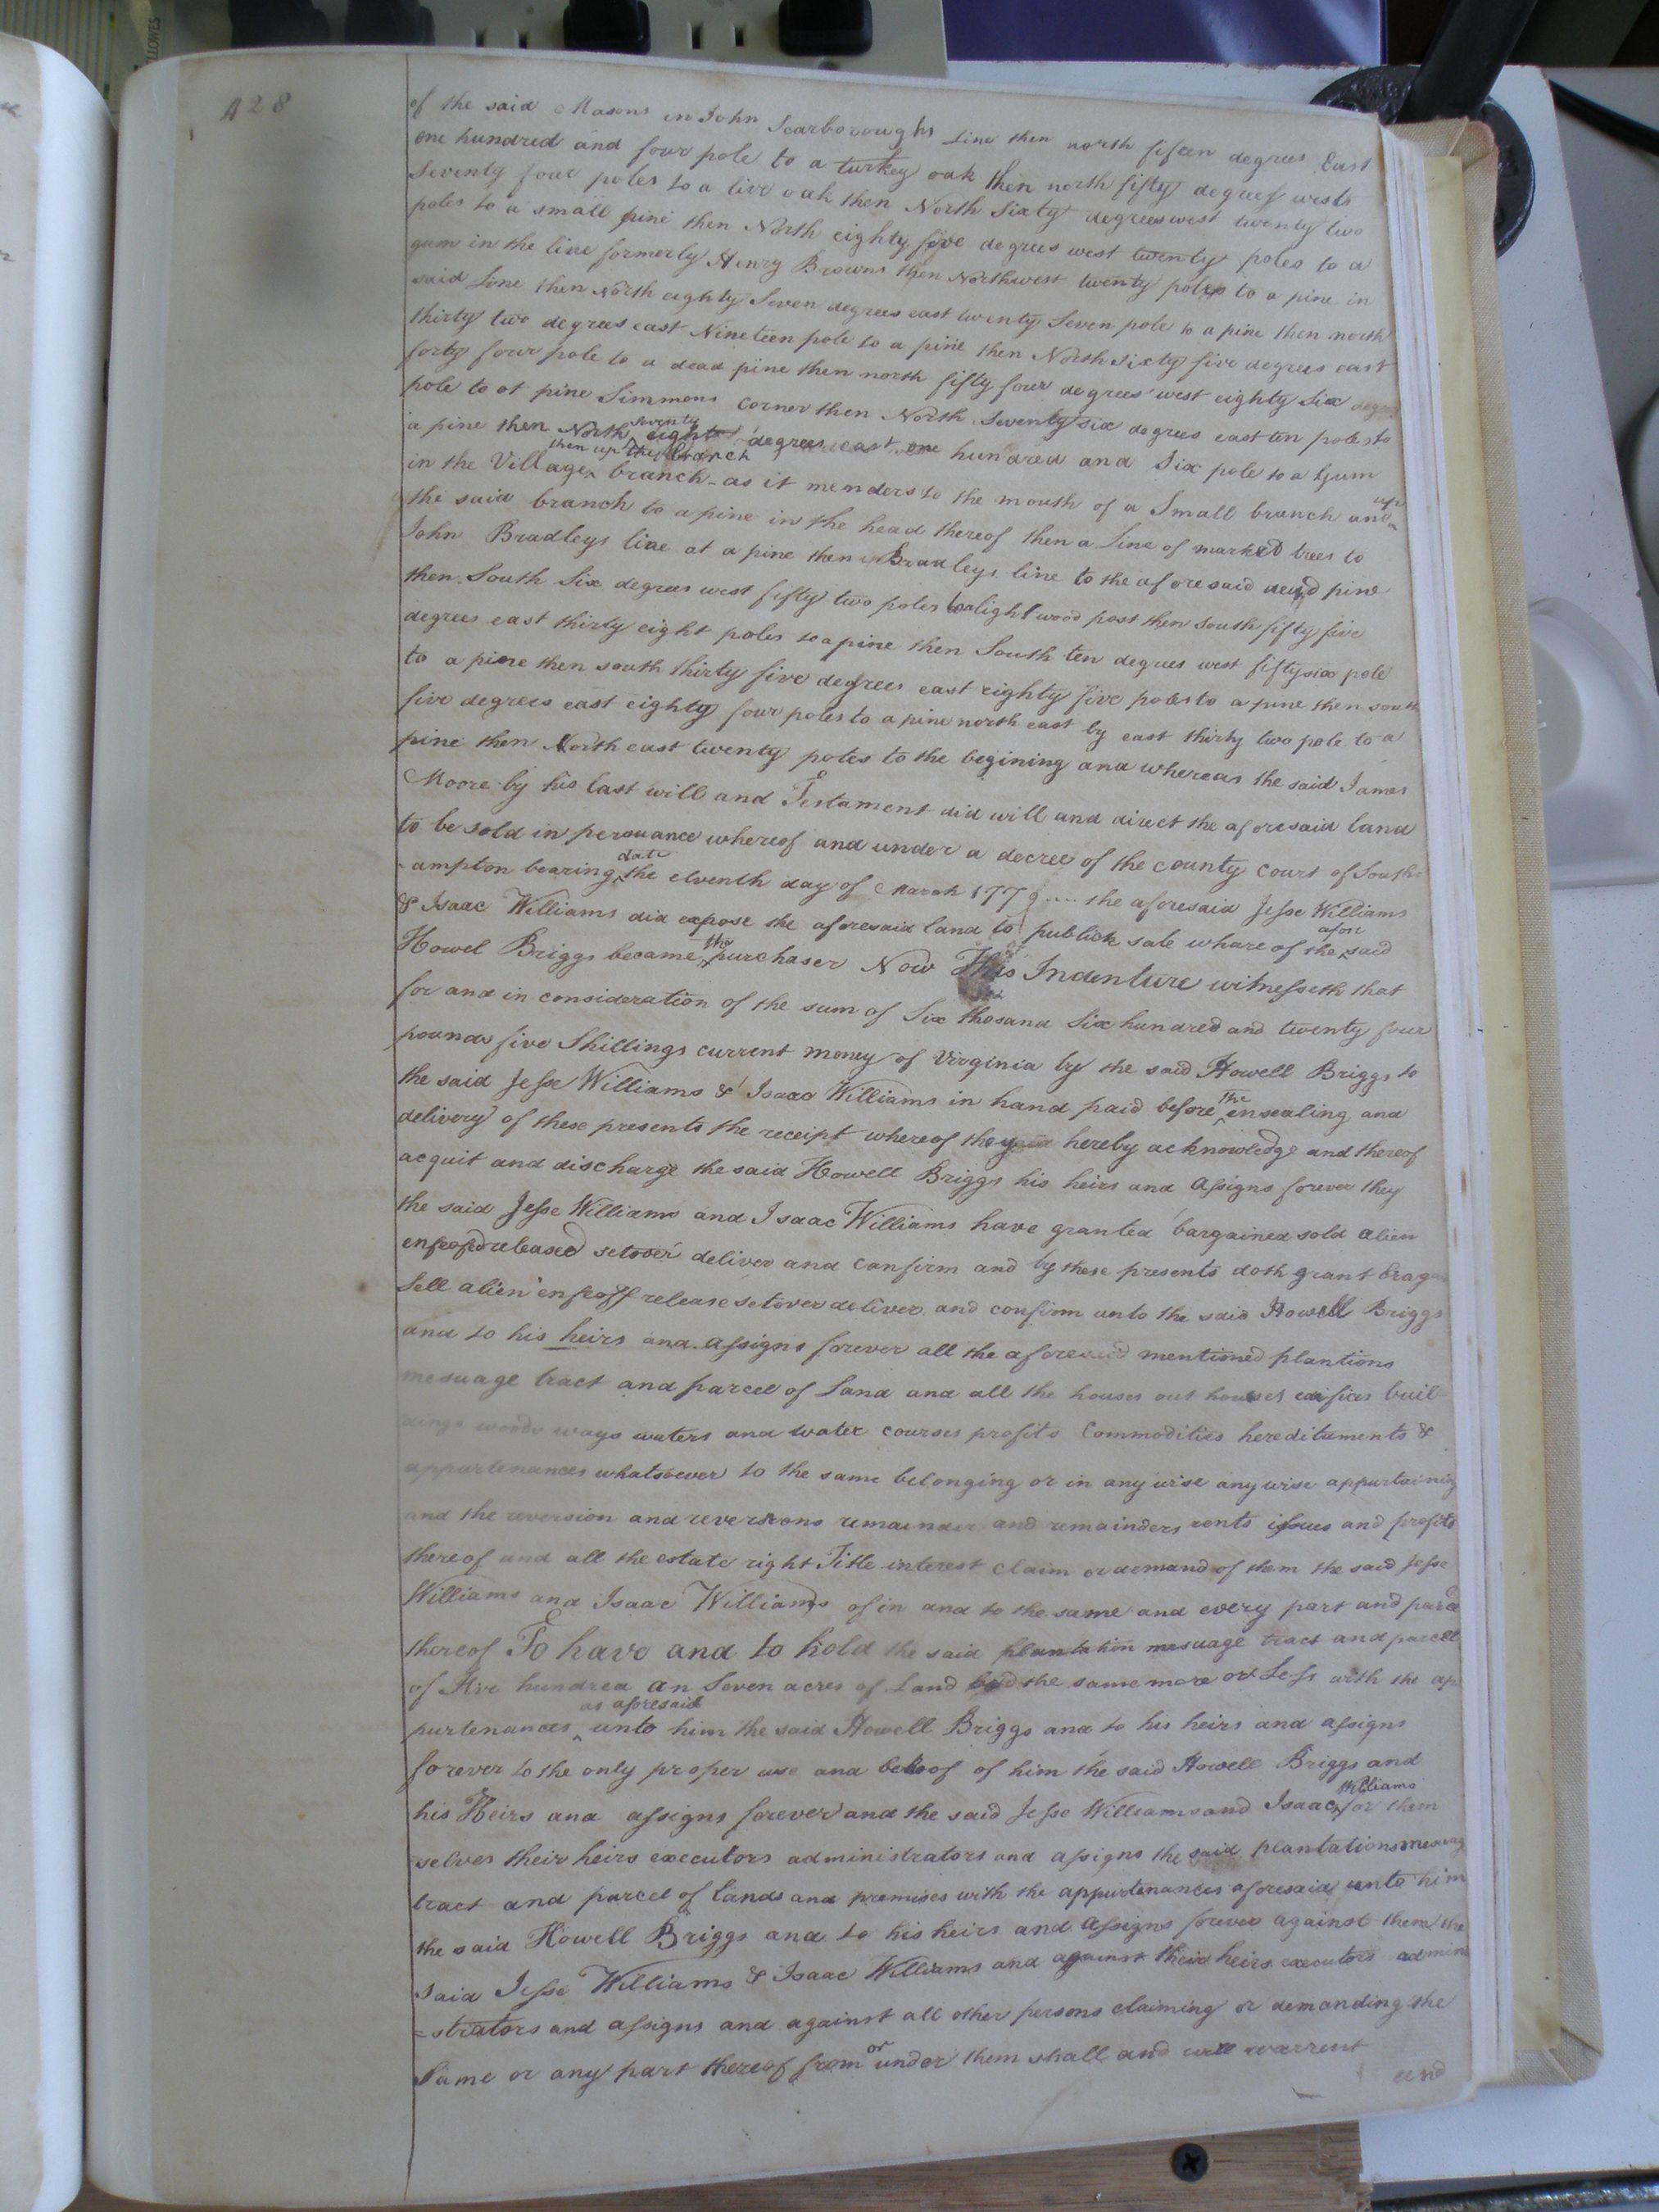 428
of the said Masons in John Scarboroughs Line then north fifteen degrees East
one hundred and four pole to a turkey oak then north fifty degrees wests
Seventy four poles to a live oak then North Sixty degrees west twenty two
poles to a small pine then North eighty five degrees west twenty poles to a
gum in the line formerly Henry Browns then Northwest twenty poles to a pine in
said Line then North eighty Seven degrees east twenty Seven pole to a pine then north
thirty two degrees east Nineteen pole to a pine then North Sixty five degrees east
forty four pole to a dead pine then north fifty four degrees west eighty Six
pole to ot pine Simmons corner then North Seventy six degrees east ten poles to
a pine then North seventy eight degrees east one hundred and Six pole to a Gum
in the Village then up the branch branch as it menders to the mouth of a Small branch and up
the said branch to a pine in the head thereof then a Line of marked trees to
John Bradleys line at a pine then Bradleys line to the aforesaid dead pine
then South Six degrees west fifty two poles to a light wood post then South fifty five
degrees east thirty eight poles to a pine then South ten degrees west fifty six pole
to a pine then south thirty five degrees east eighty five poles to a pine then south
five degrees east eighty four poles to a pine north east by east thirty two pole to a
pine then North east twenty poles to the begining and whereas the said James
Moore by his last will and Testament did will and direct the aforesaid land
to be sold in persuance whereof and under a decree of the county court of South=
-ampton bearing date the eleventh day of March 1779 .... the aforesaid Jesse Williams
& Isaac Williams did expose the aforesaid land to publick sale whare of the afore said
Howel Briggs became the purchaser Now This Indenture witnesseth that
for and in consideration of the sum of Six thosand Six hundred and twenty four
pounds five Shillings current money of Virginia by the said Howell Briggs to
the said Jesse Williams & Isaac Williams in hand paid before the ensealing and
delivery of these presents the receipt whereof they hereby acknowledge and thereof
acquit and discharge the said Howell Briggs his heirs and assigns forever they
the said Jesse Williams and Isaac Williams have granted bargained sold alien
enfeofed released setover deliver and confirm and by these presents doth grant
Sell alien enfeoff release setover deliver and confirm unto the said Howell Briggs
and to his heirs and assigns forever all the aforesaid mentioned plantions
mesuage tract and parcel of Land and all the houses out houses edifices buil
dings woods ways waters and water courses profits Commodities hereditaments &
appurtenances whatsoever to the same belonging or in any wise any wise appurtaining
and the reversion and reversions remainder and remainders rents issues and profits
thereof and all the estate right Title interest claim or demand of them the said Jesse
Williams and Isaac Williams of in and to the same and every part and parce
thereof To have and to hold the said plantation mesuage tract and parcell
of five hundred an Seven acres of Land be the same more or Less with the ap
purtenances as aforesaid unto him the said Howell Briggs and to his heirs and assigns
forever to the only proper use and behoof of him the said Howell Briggs and
his Heirs and assigns forever and the said Jesse Williams and Isaac Williams for them
selves their heirs executors administrators and assigns the said plantations
tract and parcel of Lands and premises with the appurtenances aforesaid unto him
the said Howell Briggs and to his heirs and assigns forever against them the
said Jesse Williams & Isaac Williams and against their heirs executors admini
=strators and assigns and against all other persons claiming or demanding the
Same or any part thereof from or under them shall and will warrent
and